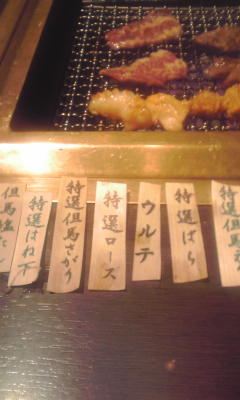 但馬塩タン
特選はね下
特選但馬さがり
特選ロース
ウルテ
特選ばら
特選但馬